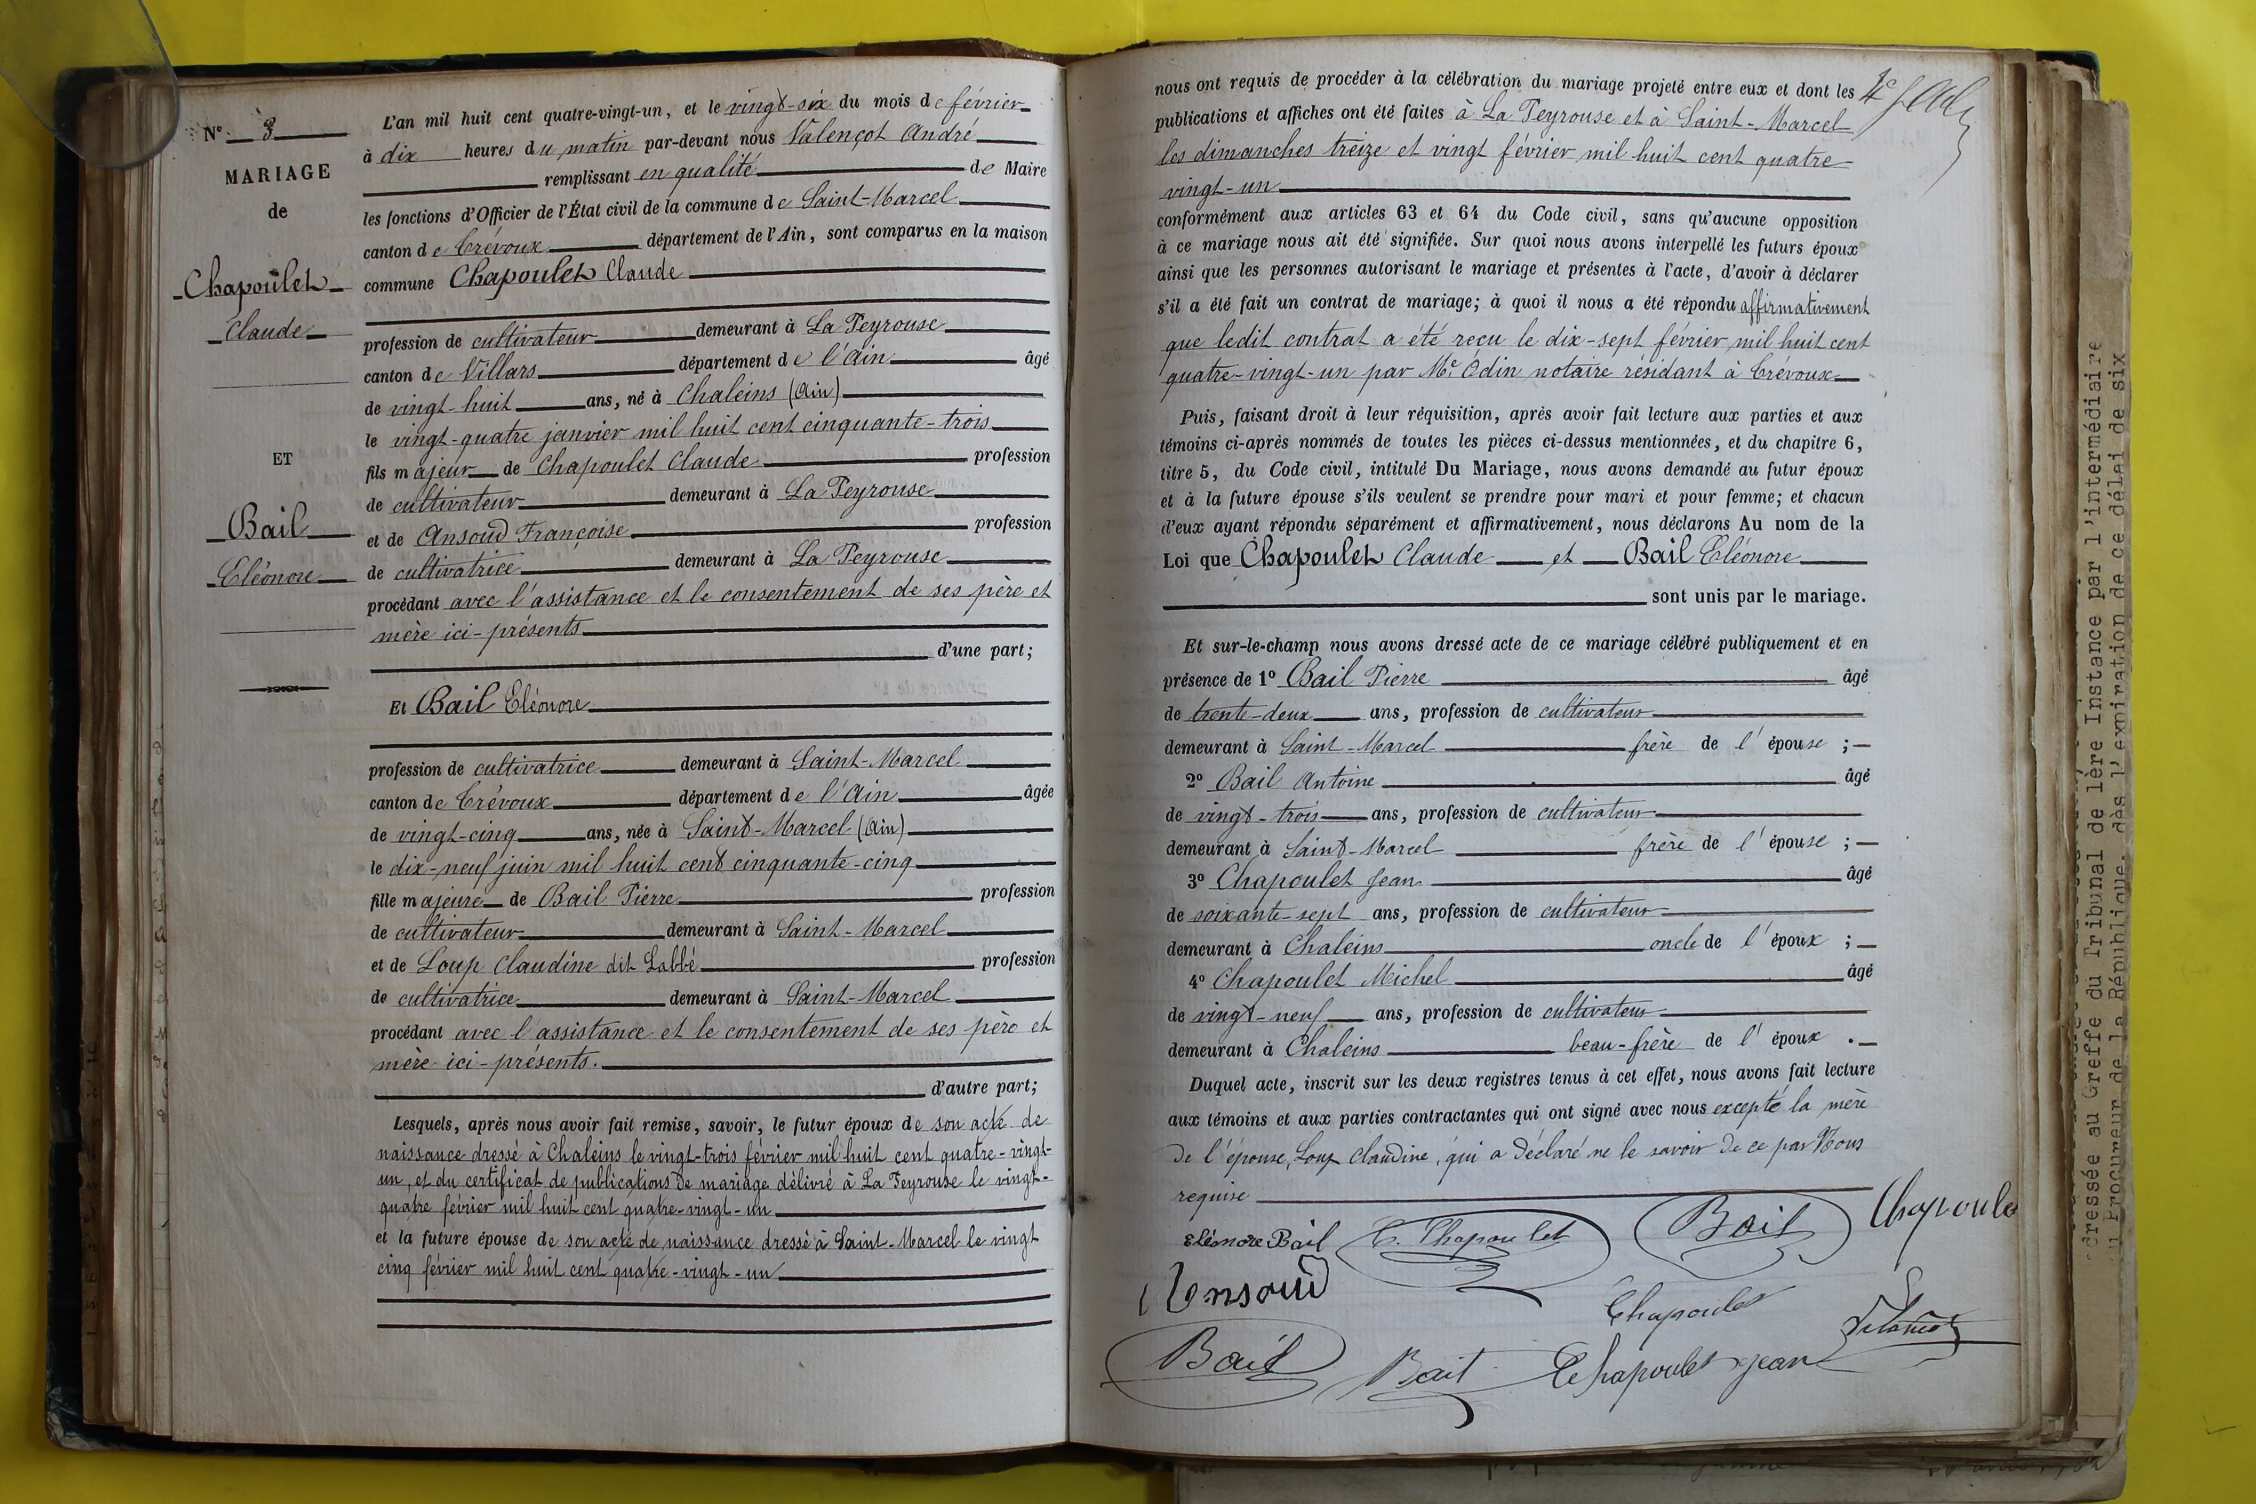 N° 3
MARIAGE
de
Chapoulet
Claude
ET
Bail
Eléonore
L'an mil huit cent quatre-vingt-un, et le vingt-six du mois de février
à dix heures du matin par-devant nous Valençot André
remplissant en qualité de Maire
les fonctions d'Officier de l'État civil de la commune de Saint-Marcel
canton de Trévoux département de l'Ain, sont comparus en la maison
commune Chapoulet Claude
profession de cultivateur demeurant à La Peyrouse
canton de Villars département de l'Ain âgé
de vingt-huit ans, né à Chaleins (Ain)
le vingt-quatre janvier mil huit cent cinquante-trois
fils majeur de Chapoulet Claude profession
de cultivateur demeurant à La Peyrouse
et de Ansoud Françoise profession
de cultivatrice demeurant à La Peyrouse
procédant avec l'assistance et le consentement de ses père et
mère ici-présents
d'une part;
Et Bail Eléonore
profession de cultivatrice demeurant à Saint-Marcel
canton de Trévoux département de l'Ain âgée
de vingt-cinq ans, née à Saint-Marcel (Ain)
le dix-neuf juin mil huit cent cinquante-cinq
fille majeure de Bail Pierre profession
de cultivateur demeurant à Saint-Marcel
et de Loup Claudine dit Labbé profession
de cultivatrice demeurant à Saint-Marcel
procédant avec l'assistance et le consentement de ses père et
mère ici-présents.
d'autre part;
Lesquels, après nous avoir fait remise, savoir, le futur époux de son acte de
naissance dressé à Chaleins le vingt-trois février mil huit cent quatre-vingt-
un, et du certificat de publications de mariage délivré à La Peyrouse le vingt-
quatre février mil huit cent quatre-vingt-un
et la future épouse de son acte de naissance dressé à Saint-Marcel le vingt
cinq février mil huit cent quatre-vingt-un
nous ont requis de procéder à la célébration du mariage projeté entre eux et dont les
publications et affiches ont été faites à La Peyrouse et à Saint-Marcel
les dimanches treize et vingt février mil huit cent quatre-
vingt-un
conformément aux articles 63 et 64 du Code civil, sans qu'aucune opposition
à ce mariage nous ait été signifiée. Sur quoi nous avons interpellé les futurs époux
ainsi que les personnes autorisant le mariage et présentes à l'acte, d'avoir à déclarer
s'il a été fait un contrat de mariage; à quoi il nous a été répondu affirmativement
que ledit contrat a été reçu le dix-sept février mil huit cent
quatre-vingt-un par Me Odin notaire résidant à Trévoux
Puis, faisant droit à leur réquisition, après avoir fait lecture aux parties et aux
témoins ci-après nommés de toutes les pièces ci-dessus mentionnées, et du chapitre 6,
titre 5, du Code civil, intitulé Du Mariage, nous avons demandé au futur époux
et à la future épouse s'ils veulent se prendre pour mari et pour femme; et chacun
d'eux ayant répondu séparément et affirmativement, nous déclarons Au nom de la
Loi que Chapoulet Claude et Bail Eléonore
sont unis par le mariage.
Et sur-le-champ nous avons dressé acte de ce mariage célébré publiquement et en
présence de 1° Bail Pierre âgé
de trente-deux ans, profession de cultivateur
demeurant à Saint-Marcel frère de l'épouse;
2° Bail Antoine âgé
de vingt-trois ans, profession de cultivateur
demeurant à Saint-Marcel frère de l'épouse;
3° Chapoulet Jean âgé
de soixante-sept ans, profession de cultivateur
demeurant à Chaleins oncle de l'époux;
4° Chapoulet Michel âgé
de vingt-neuf ans, profession de cultivateur
demeurant à Chaleins beau-frère de l'époux.
Duquel acte, inscrit sur les deux registres tenus à cet effet, nous avons fait lecture
aux témoins et aux parties contractantes qui ont signé avec nous excepté la mère
de l'épouse, Loup Claudine, qui a déclaré ne le savoir de ce par Nous
requise
Eléonore Bail C. Chapoulet Bail Chapoule
Ansoud
Chapoulet
Valençot
Bail Bail Chapoulet Jean
dressée au Greffe du Tribunal de 1ère Instance par l'intermédiaire
du Procureur de la République, dès l'expiration de ce délai de six